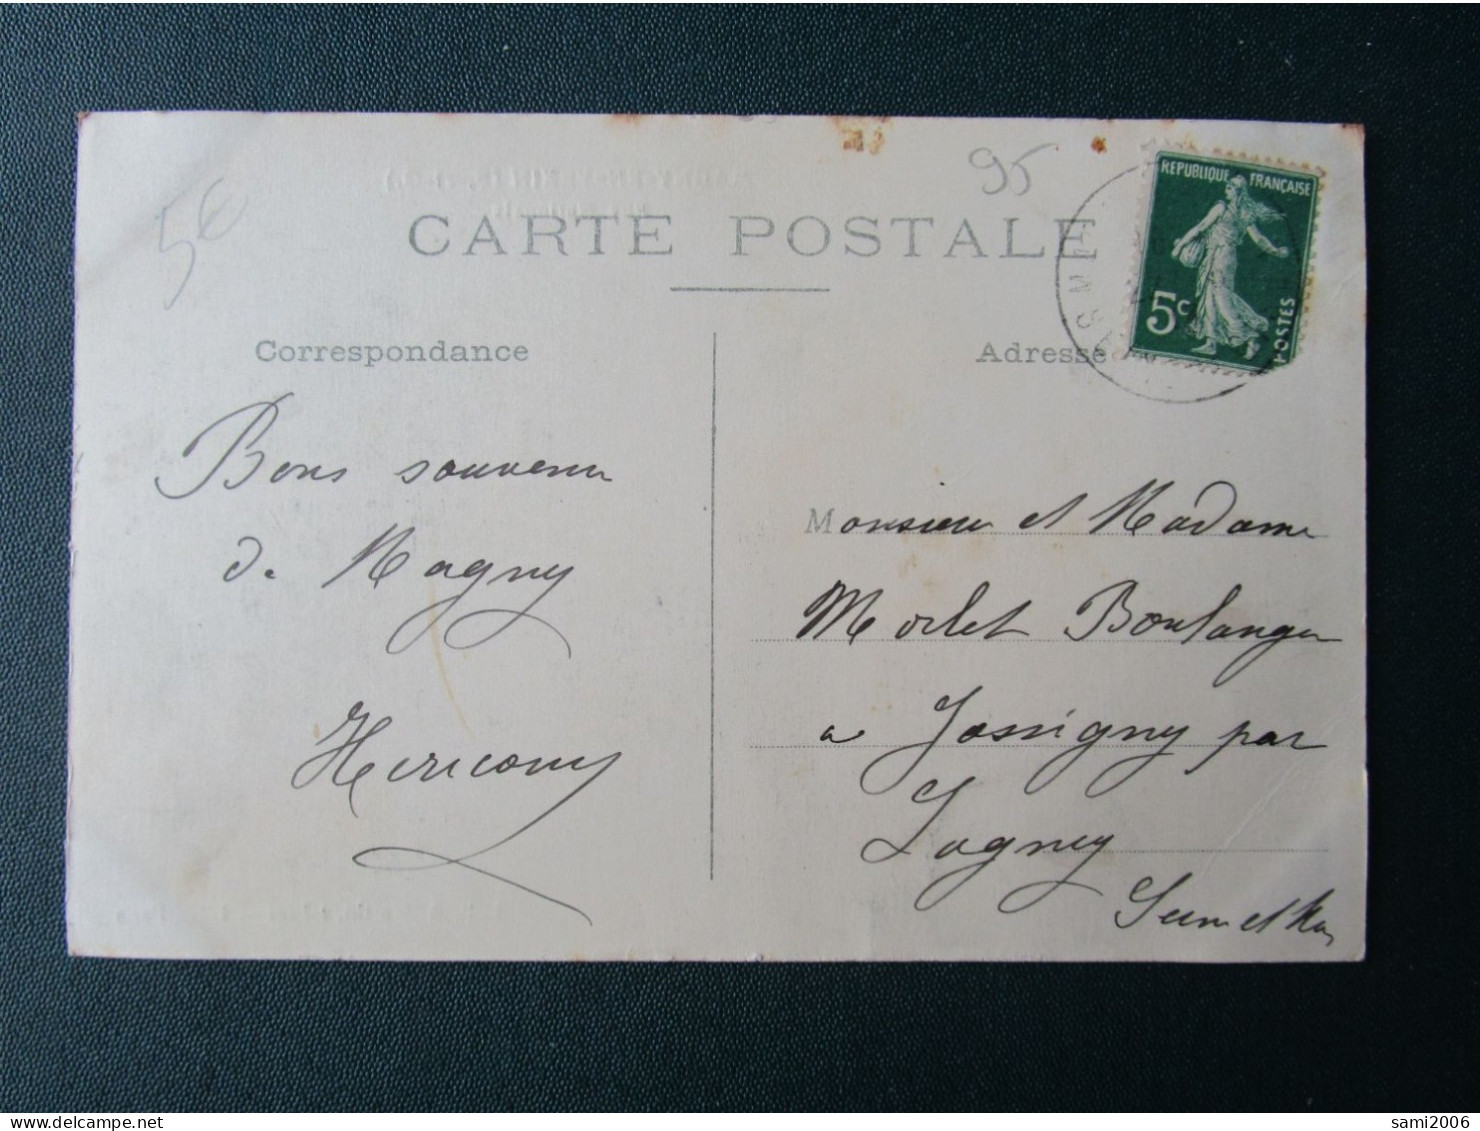 5€
95
CARTE POSTALE
RÉPUBLIQUE FRANÇAISE
5c
POSTES
Correspondance
Adresse
Bons souvenir
de Magny
Monsieur et Madame
Morlet Boulanger
a Jossigny par
Lagny
Seine et Mar
sami2006